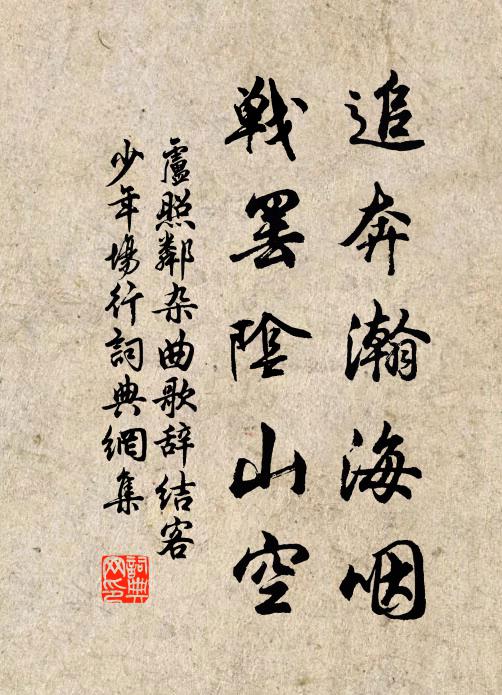 追奔瀚海咽
戦罢陰山空
盧照鄰杂曲歌辞结客
少年場行詞典網集
詞典
网印